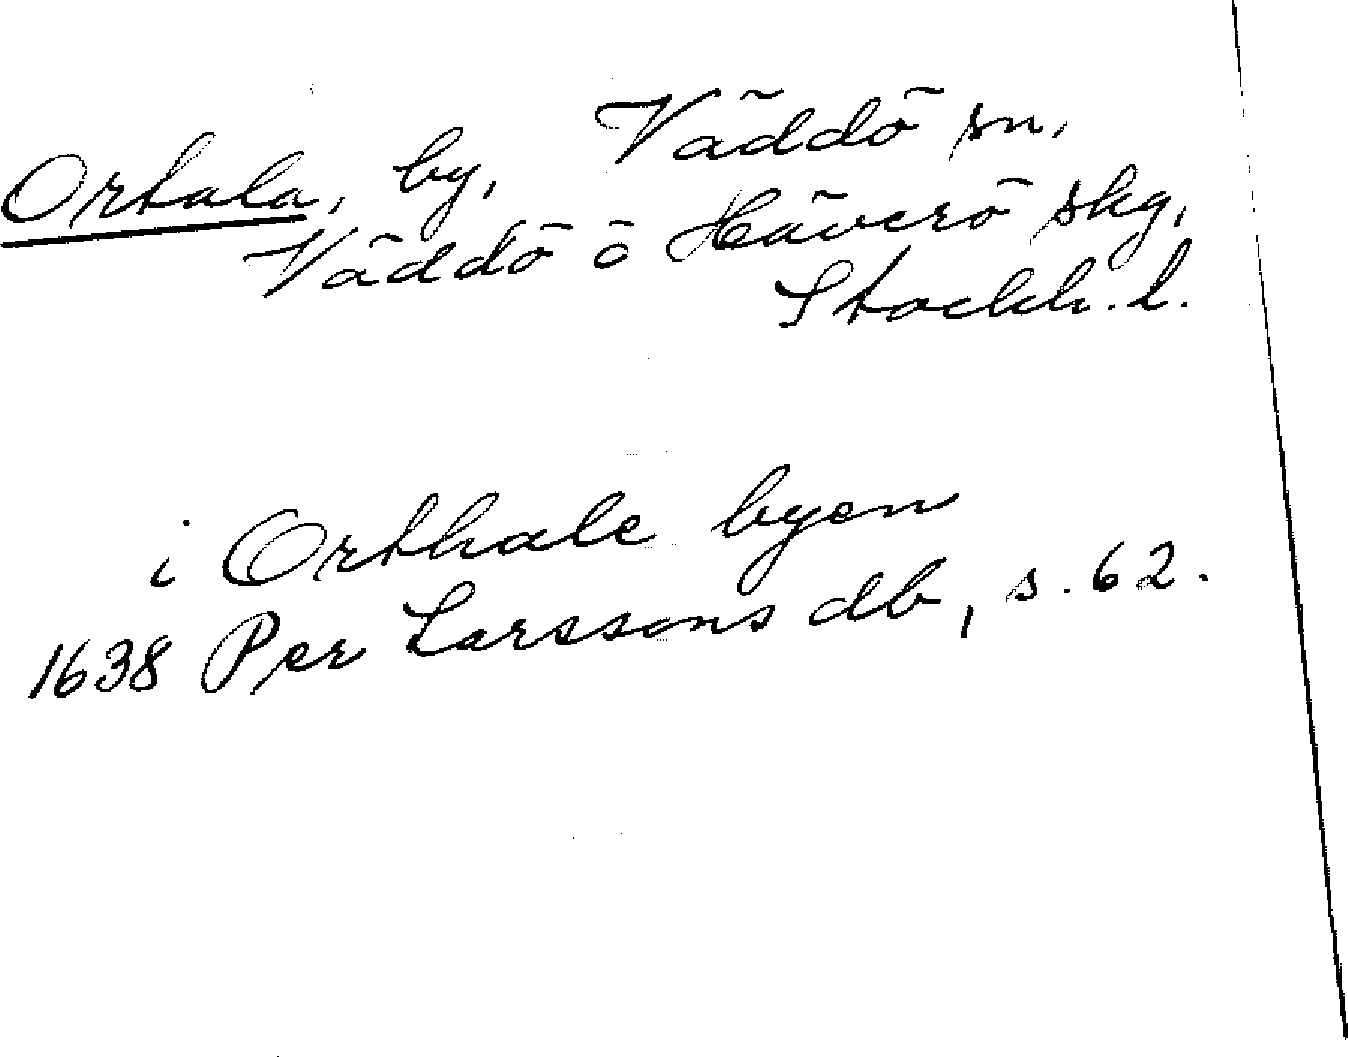 Ortala, by, Väddö sn,
Väddö ö Häverö skg,
Stockh. l.
i Orthale byen
1638 Per Larssons db, s. 62.